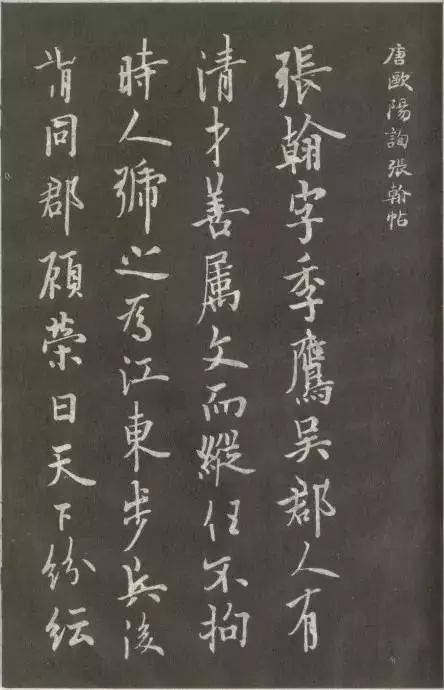 唐歐陽詢張翰帖
張翰字季鷹吳郡人有
清才善屬文而縱任不拘
時人號之為江東步兵後
謂同郡顧榮曰天下紛紜